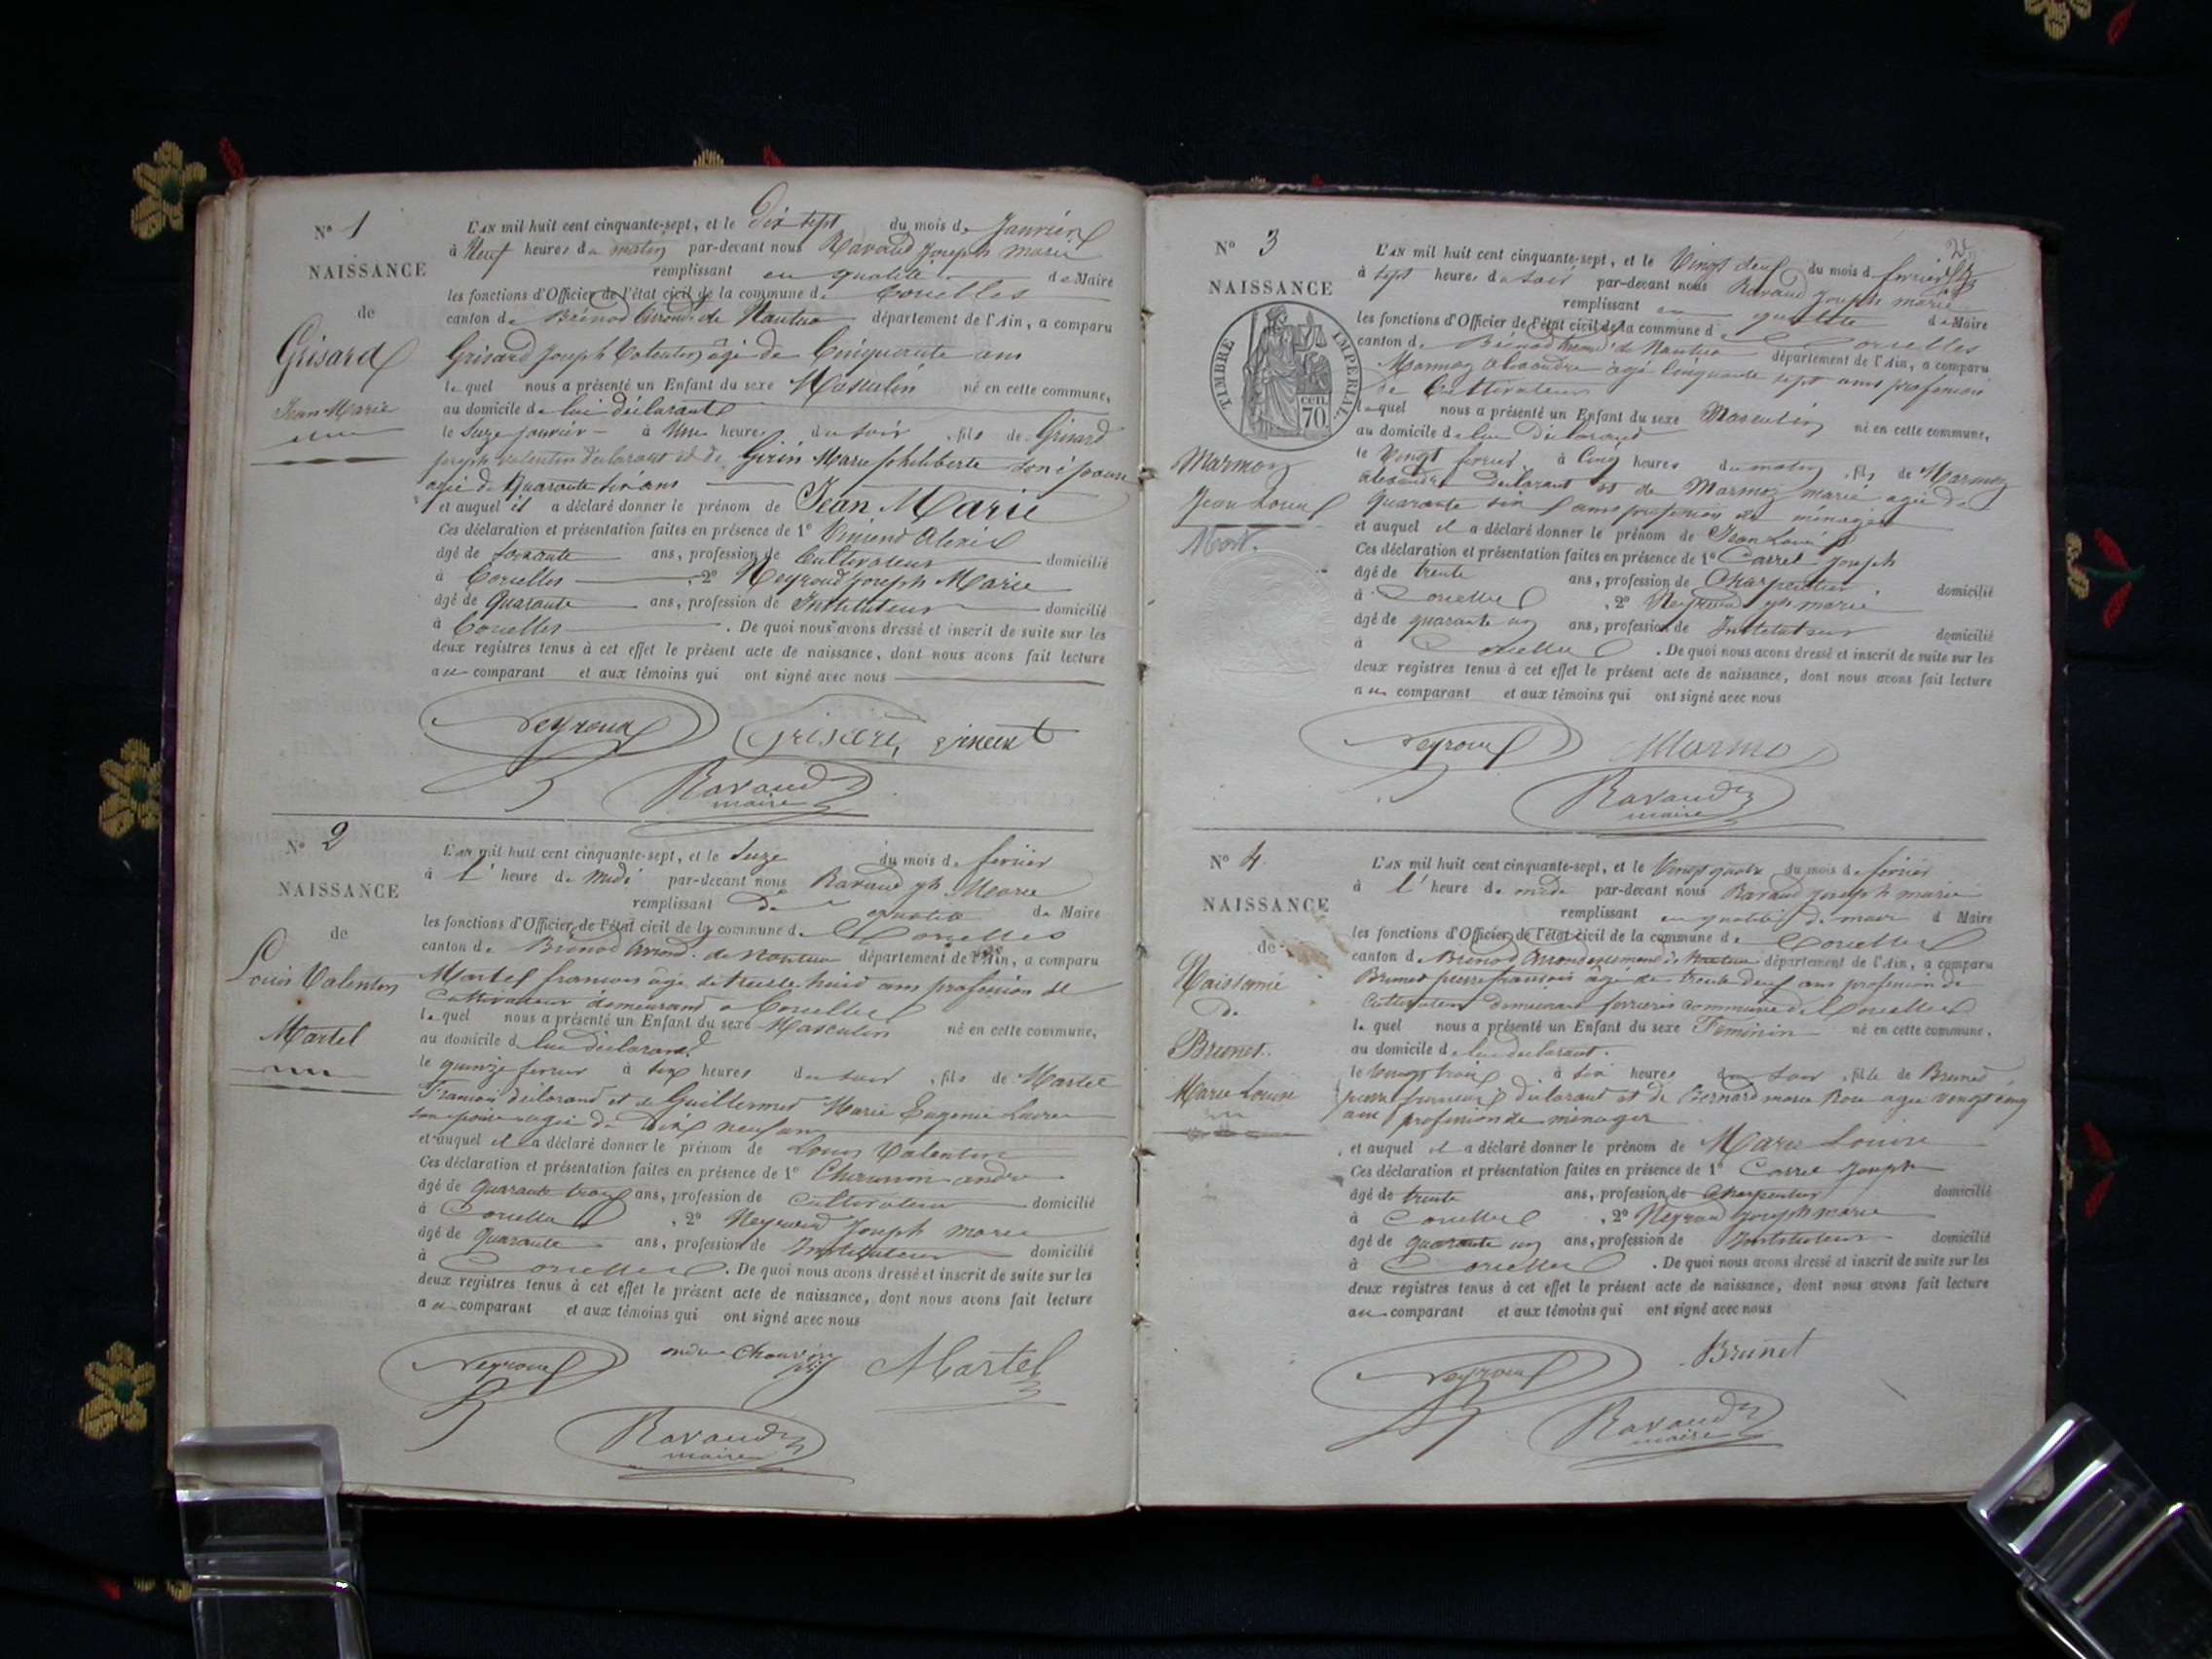 N° 1
NAISSANCE
de
Grisard
Jean Marie
L'AN mil huit cent cinquante-sept, et le Dix sept du mois de Janvier
à Neuf heures du matin par-devant nous Ravaud Joseph Marie
remplissant en qualité de Maire
les fonctions d'Officier de l'état civil de la commune de Corcelles
canton de Brénod arrond. de Nantua département de l'Ain, a comparu
Grisard Joseph Valentin âgé de Cinquante ans
lequel nous a présenté un Enfant du sexe Masculin né en cette commune,
au domicile de lui déclarant
le Seize janvier à Une heure du soir, fils de Grisard
joseph valentin déclarant et de Girin Marie philiberte son épouse
agée de Quarante six ans
et auquel il a déclaré donner le prénom de Jean Marie
Ces déclaration et présentation faites en présence de 1°
âgé de soixante ans, profession de Cultivateur domicilié
à Corcelles, 2° Neyroud Joseph Marie
âgé de Quarante ans, profession de Instituteur domicilié
à Corcelles. De quoi nous avons dressé et inscrit de suite sur les
deux registres tenus à cet effet le présent acte de naissance, dont nous avons fait lecture
au comparant et aux témoins qui ont signé avec nous
Neyroud Grisard vincent
Ravaud
maire
N° 2
NAISSANCE
de
Louis Valentin
Martel
L'AN mil huit cent cinquante-sept, et le Seize du mois de février
à l' heure de Midi par-devant nous Ravaud jph Marie
remplissant qualité de Maire
les fonctions d'Officier de l'état civil de la commune de Corcelles
canton de Brénod arrond. de Nantua département de l'Ain, a comparu
Martel francois âgé de trente huit ans profession de
Cultivateur demeurant à Corcelles
lequel nous a présenté un Enfant du sexe Masculin né en cette commune,
au domicile de lui déclarant
le quinze fevrier à six heures du soir, fils de Martel
Francois déclarant et de Guillermet Marie Eugenie
son épouse agée de Dix neuf ans
et auquel il a déclaré donner le prénom de Louis Valentin
Ces déclaration et présentation faites en présence de 1° andré
âgé de Quarante trois ans, profession de Cultivateur domicilié
à Corcelles, 2° Neyroud Joseph Marie
âgé de Quarante ans, profession de Instituteur domicilié
à Corcelles. De quoi nous avons dressé et inscrit de suite sur les
deux registres tenus à cet effet le présent acte de naissance, dont nous avons fait lecture
au comparant et aux témoins qui ont signé avec nous
Neyroud Martel
Ravaud
maire
N° 3
NAISSANCE
TIMBRE IMPERIAL
CEN. 70
Marmoz
Jean Louis
Mort.
L'AN mil huit cent cinquante-sept, et le Vingt deux du mois de fevrier
à sept heures du soir par-devant nous Ravaud Joseph marie
remplissant en qualité de Maire
les fonctions d'Officier de l'état civil de la commune de Corcelles
canton de Brénod arrond. de Nantua département de l'Ain, a comparu
Marmoz alexandre agé Cinquante sept ans profession
de Cultivateur
lequel nous a présenté un Enfant du sexe Masculin né en cette commune,
au domicile de lui Déclarant
le Vingt fevrier à Cinq heures du matin, fils de Marmoz
alexandre déclarant et de Marmoz marie agée de
Quarante six ans profession de ménagère
et auquel il a déclaré donner le prénom de Jean Louis
Ces déclaration et présentation faites en présence de 1° Carrel Joseph
âgé de trente ans, profession de Charpentier domicilié
à Corcelles, 2° Neyroud jph marie
âgé de quarante un ans, profession de Instituteur domicilié
à Corcelles. De quoi nous avons dressé et inscrit de suite sur les
deux registres tenus à cet effet le présent acte de naissance, dont nous avons fait lecture
au comparant et aux témoins qui ont signé avec nous
Neyroud Marmo
Ravaud
maire
N° 4
NAISSANCE
de
Naissance
De
Brunet
Marie Louise
L'AN mil huit cent cinquante-sept, et le Vingt quatre du mois de fevrier
à l' heure de midi par-devant nous Ravaud Joseph marie
remplissant en qualité de maire d Maire
les fonctions d'Officier de l'état civil de la commune de Corcelles
canton de Brénod Arrondissement de Nantua département de l'Ain, a comparu
Brunet pierre francois âgé de trente deux ans profession de
Cultivateur demeurant ferrieres commune de Corcelles
lequel nous a présenté un Enfant du sexe Féminin né en cette commune.
au domicile de lui déclarant.
le vingt trois à six heures du soir, fille de Brunet
pierre francois déclarant et de Bernard marie Rose agée vingt cinq
ans profession de ménager
et auquel il a déclaré donner le prénom de Marie Louise
Ces déclaration et présentation faites en présence de 1° Carrel Joseph
âgé de trente ans, profession de Charpentier domicilié
à Corcelles, 2° Neyroud joseph marie
âgé de quarante un ans, profession de Instituteur domicilié
à Corcelles. De quoi nous avons dressé et inscrit de suite sur les
deux registres tenus à cet effet le présent acte de naissance, dont nous avons fait lecture
au comparant et aux témoins qui ont signé avec nous
Brunet
Neyroud
Ravaud
maire